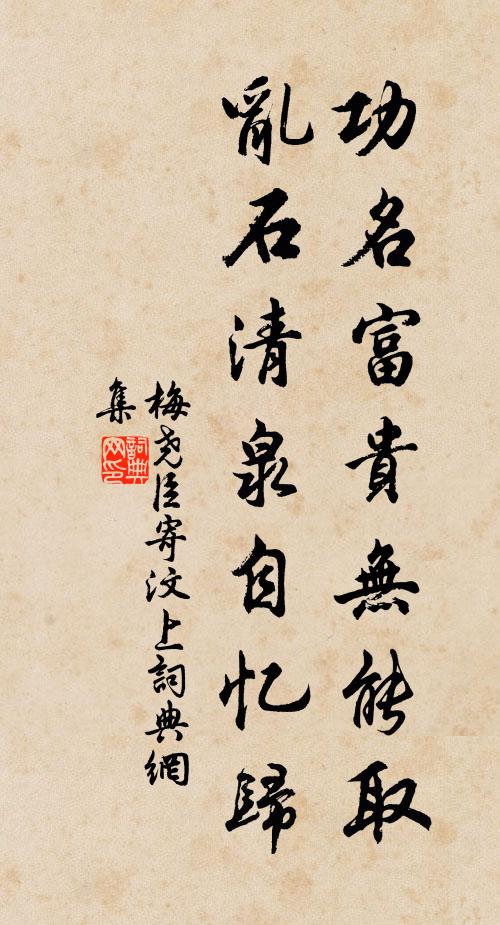 功名富貴無能取
亂石清泉自忆歸
梅尧臣寄汶上詞典網
集
詞典
网印